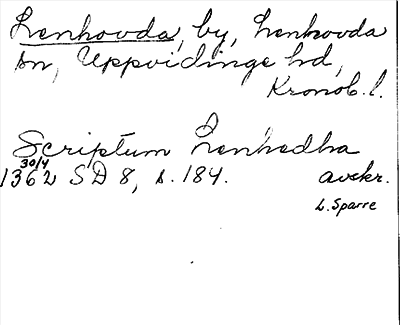 Lenhovda, by, Lenhovda
sn, Uppvidinge hd,
Kronob. l.
Scriptum Lenhædha
30/4
1362 SD 8, s. 184. avskr.
L. Sparre